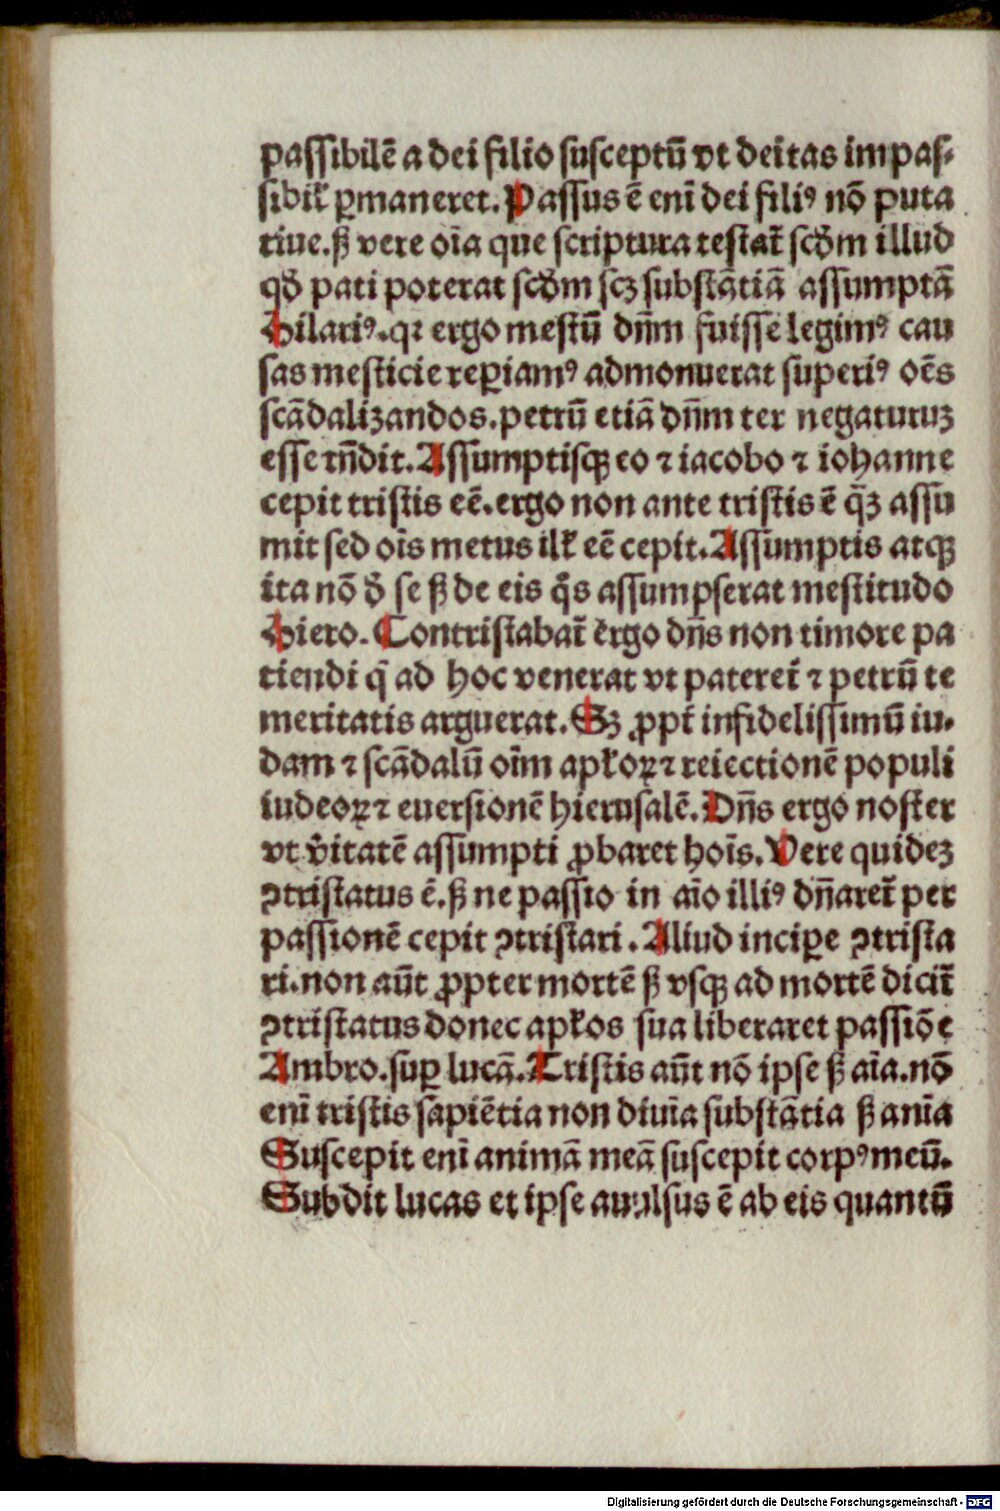 passibilē a dei filio susceptū vt deitas impas⸗
sibilꝭ ꝑmaneret. Passus ē eni̅ dei filiꝰ nō puta
tiue. sꝫ vere oi̅a que scriptura testat̃ scḋm illud
qḋ pati poterat scḋm scꝫ substātiā assumptā
Hilariꝰ. qꝛ ergo mestū dn̄m fuisse legimꝰ cau
sas mesticie reꝑiamꝰ admonuerat superiꝰ oēs
scādalizandos. petrū etiā dn̄m ter negaturuꝫ
esse rn̄dit. Assumptisqꝫ eo ⁊ iacobo ⁊ iohanne
cepit tristis eē. ergo non ante tristis ē q̄ꝫ assu
mit sed oi̅s metus ilꝉ eē cepit. Assumptis atqꝫ
ita nō ḋ se sꝫ de eis q̄s assumpserat mestitudo
Hiero. Contristabat̃ ergo dn̄s non timore pa
tiendi q̄ ad hoc venerat vt pateret̃ ⁊ petrū te
meritatis arguerat. Sꝫ ꝓpt̃ infidelissimū iu⸗
dam ⁊ scādalū oi̅m apꝉoꝝ ⁊ reiectionē populi
iudeoꝝ ⁊ euersionē hierusalē. Dn̄s ergo noster
vt v̓itatē assumpti ꝓbaret hoi̅s. Vere quideꝫ
ꝯtristatus ē. sꝫ ne passio in ai̅o illiꝰ dn̄aret̃ per
passionē cepit ꝯtristari. Aliud inciꝑe ꝯtrista
ri. non aūt ꝓpter mortē sꝫ vsqꝫ ad mortē dicit̃
ꝯtristatus donec apꝉos sua liberaret passiōe
Ambro. suꝑ lucā. Tristis aūt nō ipse sꝫ ai̅a. nō
eni̅ tristis sapiētia non diui̅a substātia sꝫ ani̅a
Suscepit eni̅ animā meā suscepit corpꝰ meū.
Subdit lucas et ipse auulsus ē ab eis quantū
Digitalisierung gefördert durch die Deutsche Forschungsgemeinschaft - DFG